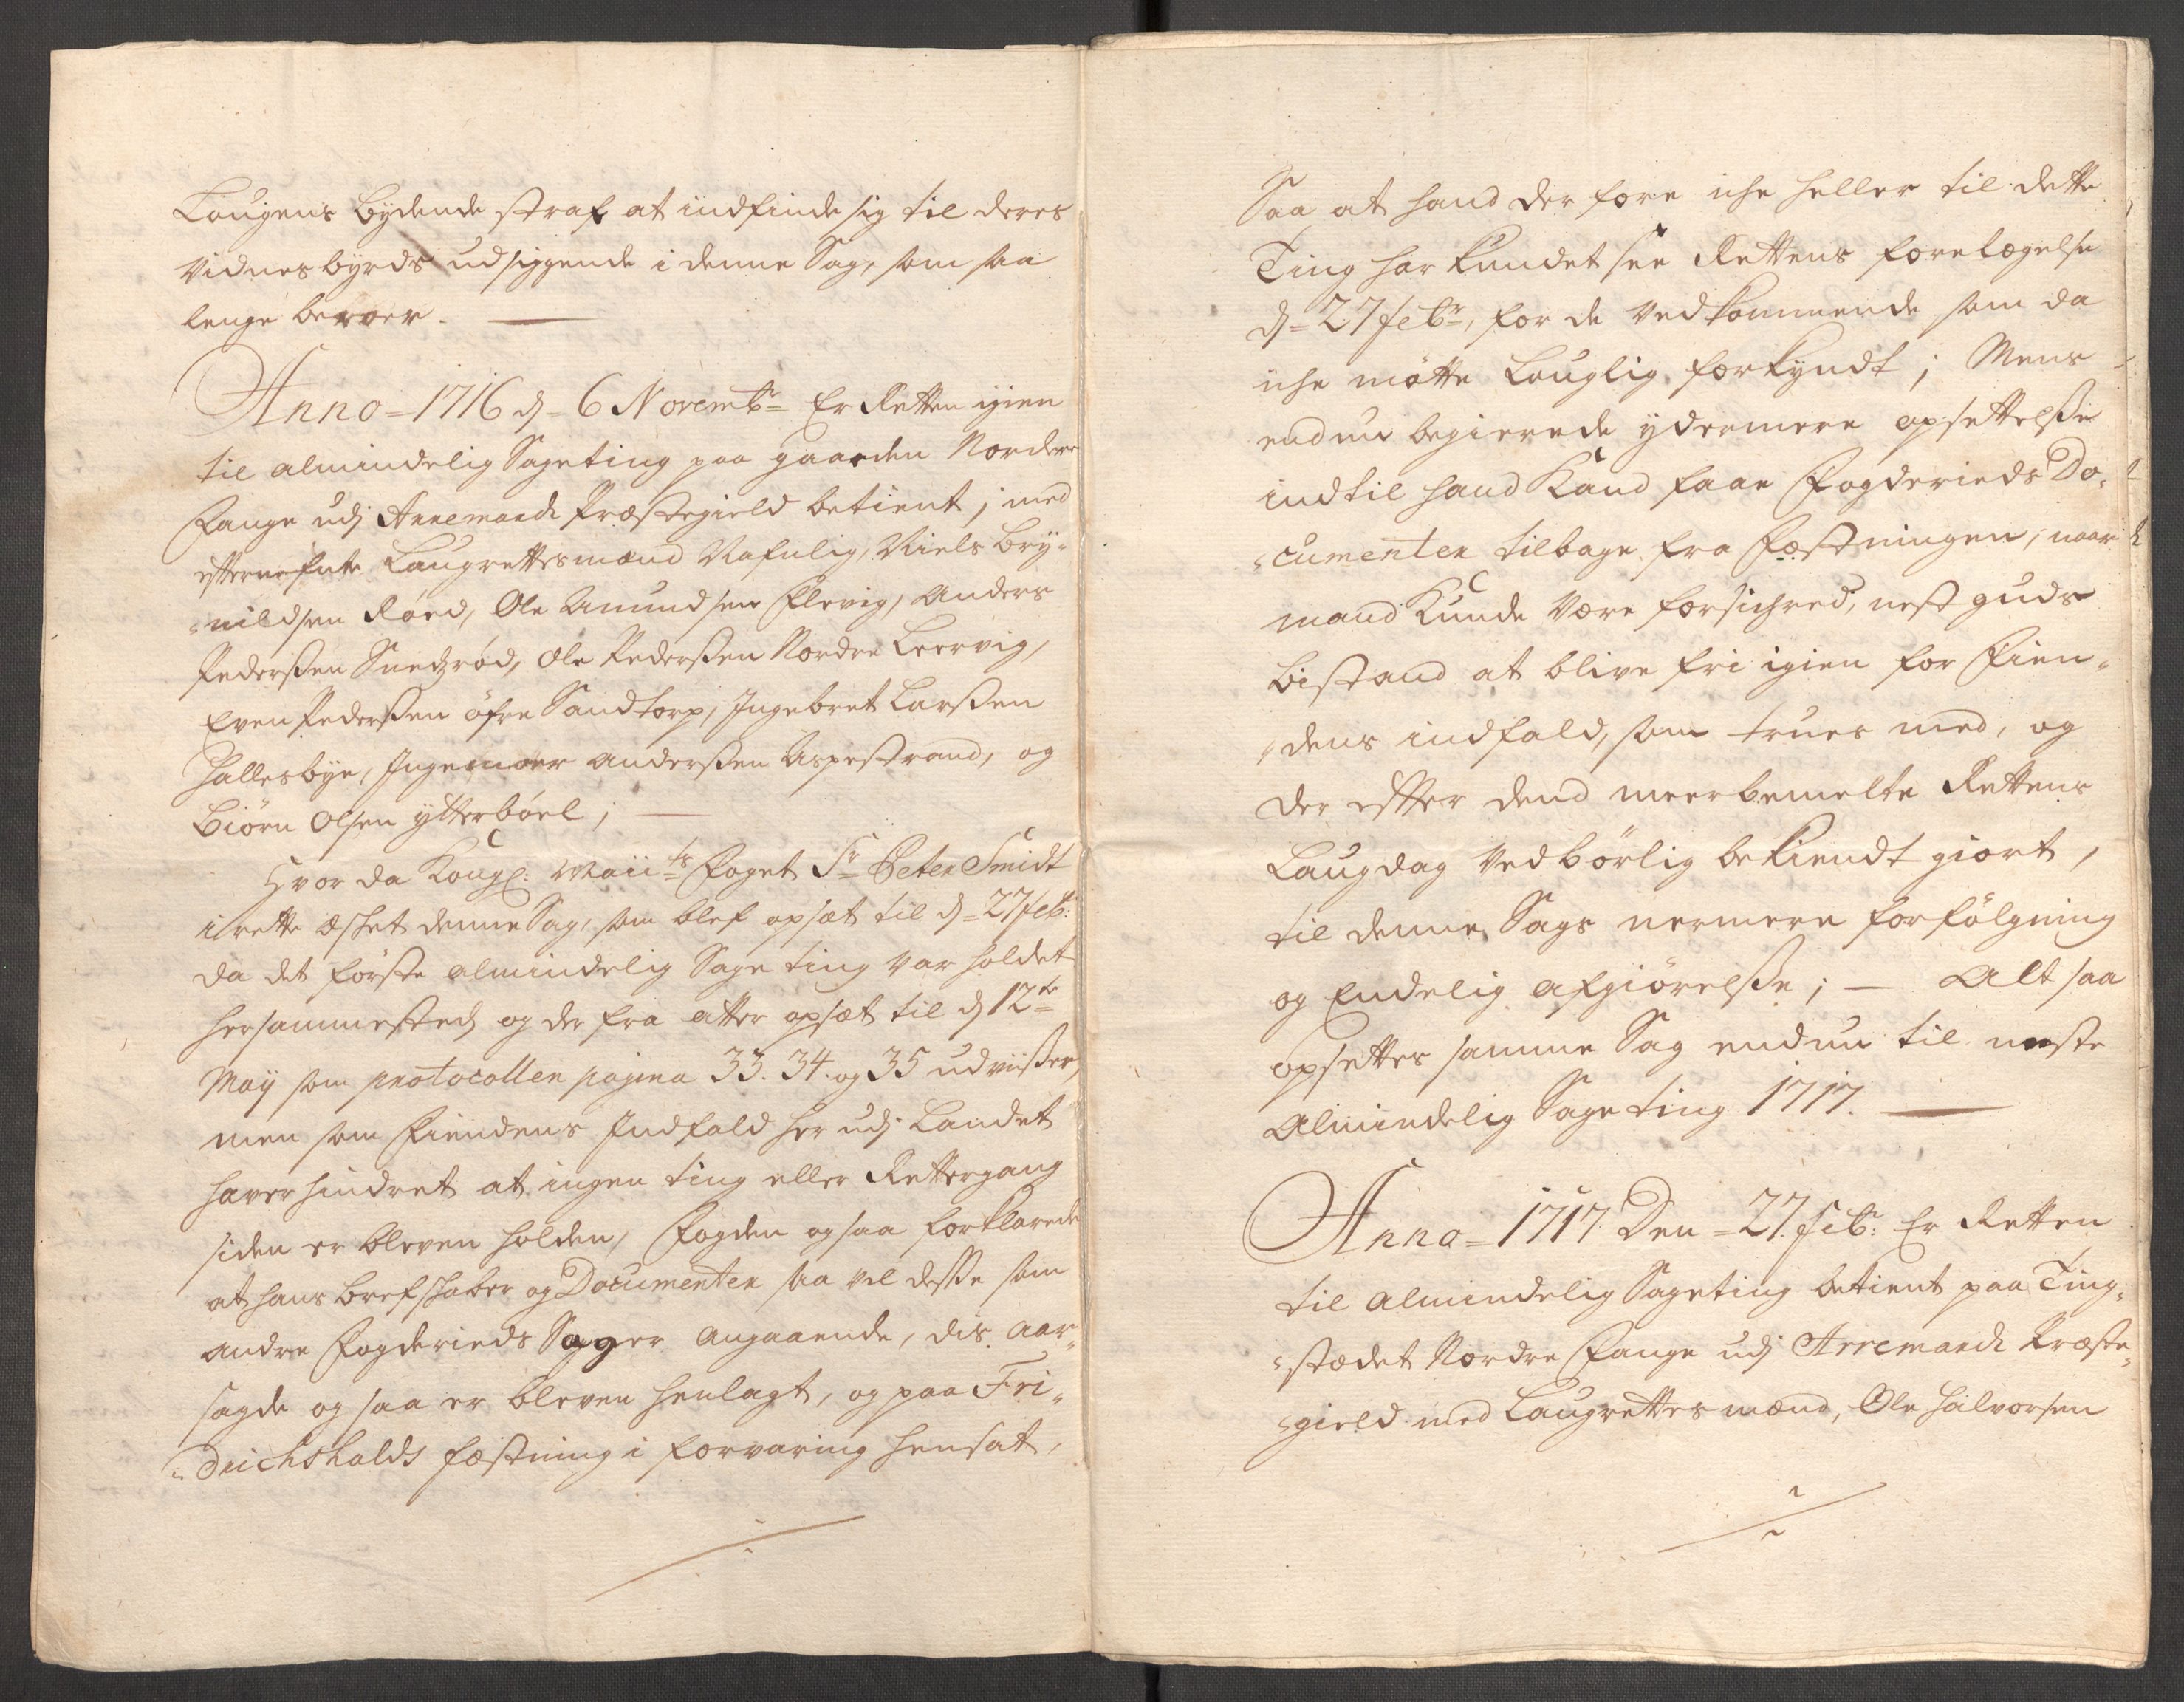 Lougens bÿdende straf at indfinde sig til deres
Vidnesbÿrds udsiggende i denne Sag, som saa
lenge beroer.
Anno = 1716 d = 6 Novembr = Er Retten igien
til almindelig Sageting paa gaarden Nordere
Fange udj Arremarck Præstegield betient, med
efternefnte Laugrettesmænd Nafnlig, Niels Brÿ-
-nildsen Röed, Ole Amundsen Elevig, Anders
Pederssen Snedzröd, Ole Pederssen Nordre Leervig,
Even Pederssen öfre Sandtorp, Ingebret Larssen
Hallesbÿe, Ingemoer Anderssen Aspestrand, og
Biörn Olsen ÿtterböel;
Hvor da Kongl: Maiits Foget Sr Peter Smidt
i rette æsket denne Sag, som blef opsæt til d = 27 feb:
da det förste almindelig Sage ting var holdet
hersammested, og der fra atter opsæt til d 12te
Maÿ som protocollen pagina 33. 34. og 35 udvisser,
men som Fiendens Indfald her udj Landet
haver hindret at ingen ting eller Rettergang
siden er bleven holden, Fogden og saa forklarede
at hans brefskaber og Documenter saa vel desse som
andre Fogderieds Sager angaaende, dis aar-
sagde og saa er bleven henlagt, og paa Fri-
-derichshalds fæstning i forvaring hensat,
Saa at hand der fore iche heller til dette
Ting har kundet see Rettens forelægelse
d = 27 febr =, for de Vedkommende som da
iche mötte Louglig forkÿndt; Mens
endnu begierede ÿdermere opsettelsse
indtil hand Kand faae Fogderieds Do-
-cumenter tilbage fra Fæstningen, naar
mand Kunde Være forsichred, nest guds
bistand at blive fri igien for Fien-
-dens indfald, som trues med, og
der effter dend meerbemelte Rettens
Laugdag Vedbörlig bekiendt giort,
til denne Sags nermere forfölgning
og Endelig afgiörelsse; – Alt saa
opsettes samme Sag endnu til neste
Almindelig Sage ting 1717.
Anno = 1717 Den = 27. febr: Er Retten
til Almindelig Sageting betient paa Ting-
-stædet Nordre Fange udj Arremarck Præste-
-gield med Laugrettes mænd, Ole Halvorsen